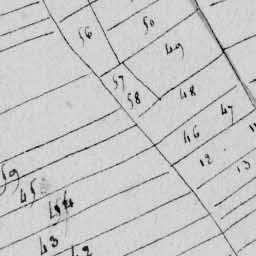 50
56
49
57
58
48
47
46
12
13
59
45
44
43
42